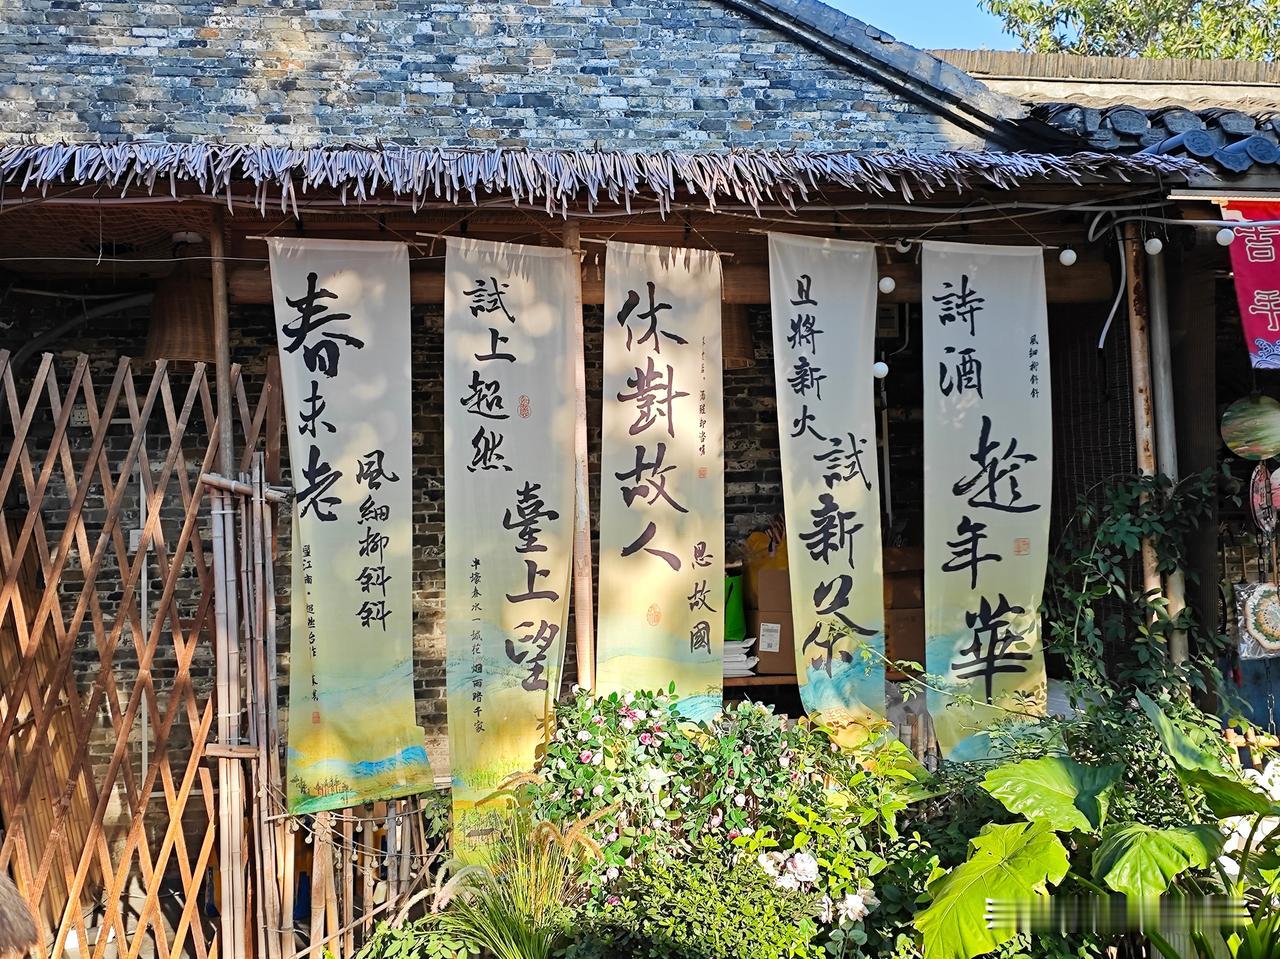 春未老
風細柳斜斜
望江南·超然台作
試上超然
臺上望
半壕春水一城花 烟雨暗千家
休對故人
思故國
酒醒却咨嗟
且將新火
試新茶
詩酒
趁年華
風細柳斜斜